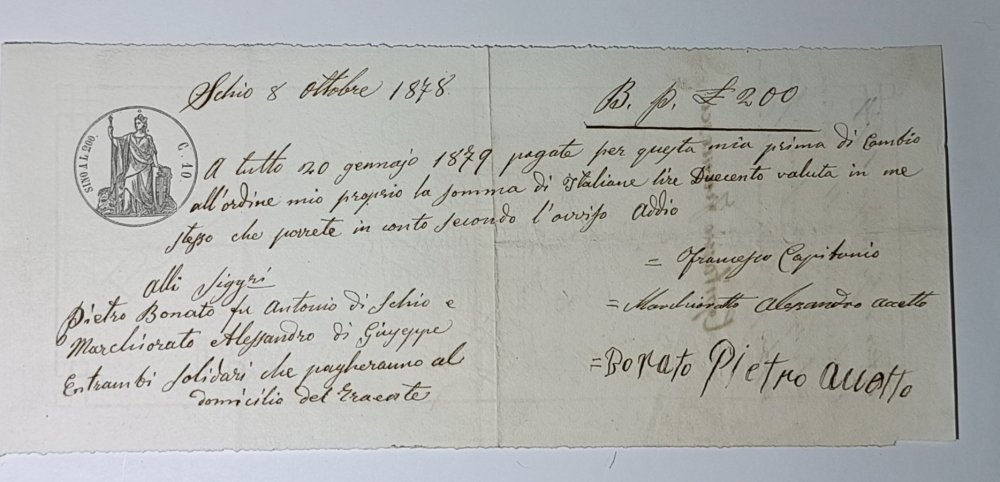 Schio 8 Ottobre 1878.
B. p. £ 200
SINO AL 200.
C. 10
A tutto 20 gennajo 1879 pagate per questa mia prima di Cambio
all'ordine mio proprio la somma di Italiane lire Duecento valuta in me
stesso che porrete in conto secondo l'avviso Addio
= Francesco Capitonio
Alli Sigg.ri
Pietro Bonato fu Antonio di Schio e
Marchiorato Alessandro di Giuseppe
Entrambi solidari che pagheranno al
domicilio del Traente
= Marchioratto Alesandro acetto
= Bonato Pietro accetto